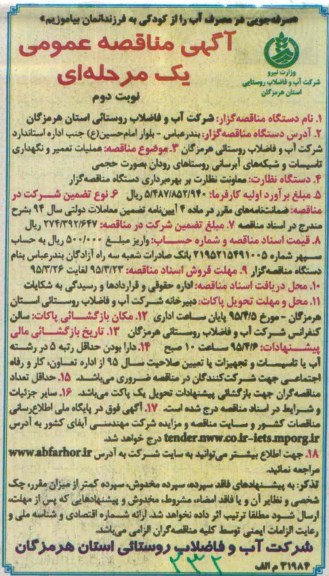 صرفه‌جویی در مصرف آب را از کودکی به فرزندانمان بیاموزیم»
آگهی مناقصه عمومی
یک مرحله‌ای
نوبت دوم
وزارت نیرو
شرکت آب و فاضلاب روستایی
استان هرمزگان
۱. نام دستگاه مناقصه‌گزار: شرکت آب و فاضلاب روستائی استان هرمزگان
۲. آدرس دستگاه مناقصه‌گزار: بندرعباس - بلوار امام‌حسین(ع) جنب اداره استاندارد
شرکت آب و فاضلاب روستائی هرمزگان ۳. موضوع مناقصه: عملیات تعمیر و نگهداری
تاسیسات و شبکه‌های آبرسانی روستاهای رودان بصورت حجمی
۴. دستگاه نظارت: معاونت نظارت بر بهره‌برداری دستگاه مناقصه‌گزار
۵. مبلغ برآورد اولیه کارفرما: ۵/۴۸۷/۸۵۲/۹۴۰ ریال ۶. نوع تضمین شرکت در
مناقصه: ضمانت‌نامه‌های مقرر در ماده ۴ آیین‌نامه تضمین معاملات دولتی سال ۹۴ بشرح
مندرج در اسناد مناقصه ۷. مبلغ تضمین شرکت در مناقصه: ۲۷۴/۳۹۲/۶۴۷ ریال
۸. قیمت اسناد مناقصه و شماره حساب: واریز مبلغ ۵۰۰/۰۰۰ ریال به حساب
سپهر شماره ۲۱۹۵۲۱۵۴۹۱۰۰۵ بانک صادرات شعبه سه راه آزادگان بندرعباس بنام
دستگاه مناقصه‌گزار ۹. مهلت فروش اسناد مناقصه: ۹۵/۳/۲۳ لغایت ۹۵/۳/۲۶
۱۰. محل دریافت اسناد مناقصه: اداره حقوقی و قراردادها و رسیدگی به شکایات
۱۱. محل و مهلت تحویل پاکات: دبیرخانه شرکت آب و فاضلاب روستائی استان
هرمزگان - مورخ ۹۵/۴/۵ پایان ساعت اداری ۱۲. مکان بازگشائی پاکات: سالن
کنفرانس شرکت آب و فاضلاب روستائی هرمزگان ۱۳. تاریخ بازگشائی مالی
پیشنهادات: ۹۵/۴/۶ ساعت ۱۰ صبح ۱۴. دارا بودن حداقل رتبه ۵ در رشته
آب یا تاسیسات و تجهیزات یا تعیین صلاحیت سال ۹۵ از اداره تعاون، کار و رفاه
اجتماعی جهت شرکت‌کنندگان در مناقصه ضروری می‌باشد. ۱۵. حداقل تعداد
مناقصه‌گران جهت بازگشائی پیشنهادات تحویل یک پاکت می‌باشد. ۱۶. سایر جزئیات
و شرایط در اسناد مناقصه درج شده است. ۱۷. آگهی فوق در پایگاه ملی اطلاع‌رسانی
مناقصات کشور و سایت مناقصه و مزایده شرکت مهندسی آبفای کشور به آدرس
tender.nww.co.ir-iets.mporg.ir درج خواهد شد.
۱۸. جهت اطلاع بیشتر می‌توانید به سایت شرکت به آدرس www.abfarhor.ir
مراجعه نمائید
تذکر: به پیشنهادهای فاقد سپرده، سپرده مخدوش، سپرده کمتر از میزان مقرر، چک
شخصی و نظایر آن و یا فاقد امضاء، مشروط، مخدوش و پیشنهادهایی که پس از مهلت،
ارسال شود مطلقا ترتیب اثر داده نخواهد شد. ارائه شماره اقتصادی و شناسه ملی و
رعایت الزامات ایمنی توسط کلیه مناقصه‌گران الزامی می‌باشد.
شرکت آب و فاضلاب روستائی استان هرمزگان
۳۱۹۸۴ م الف